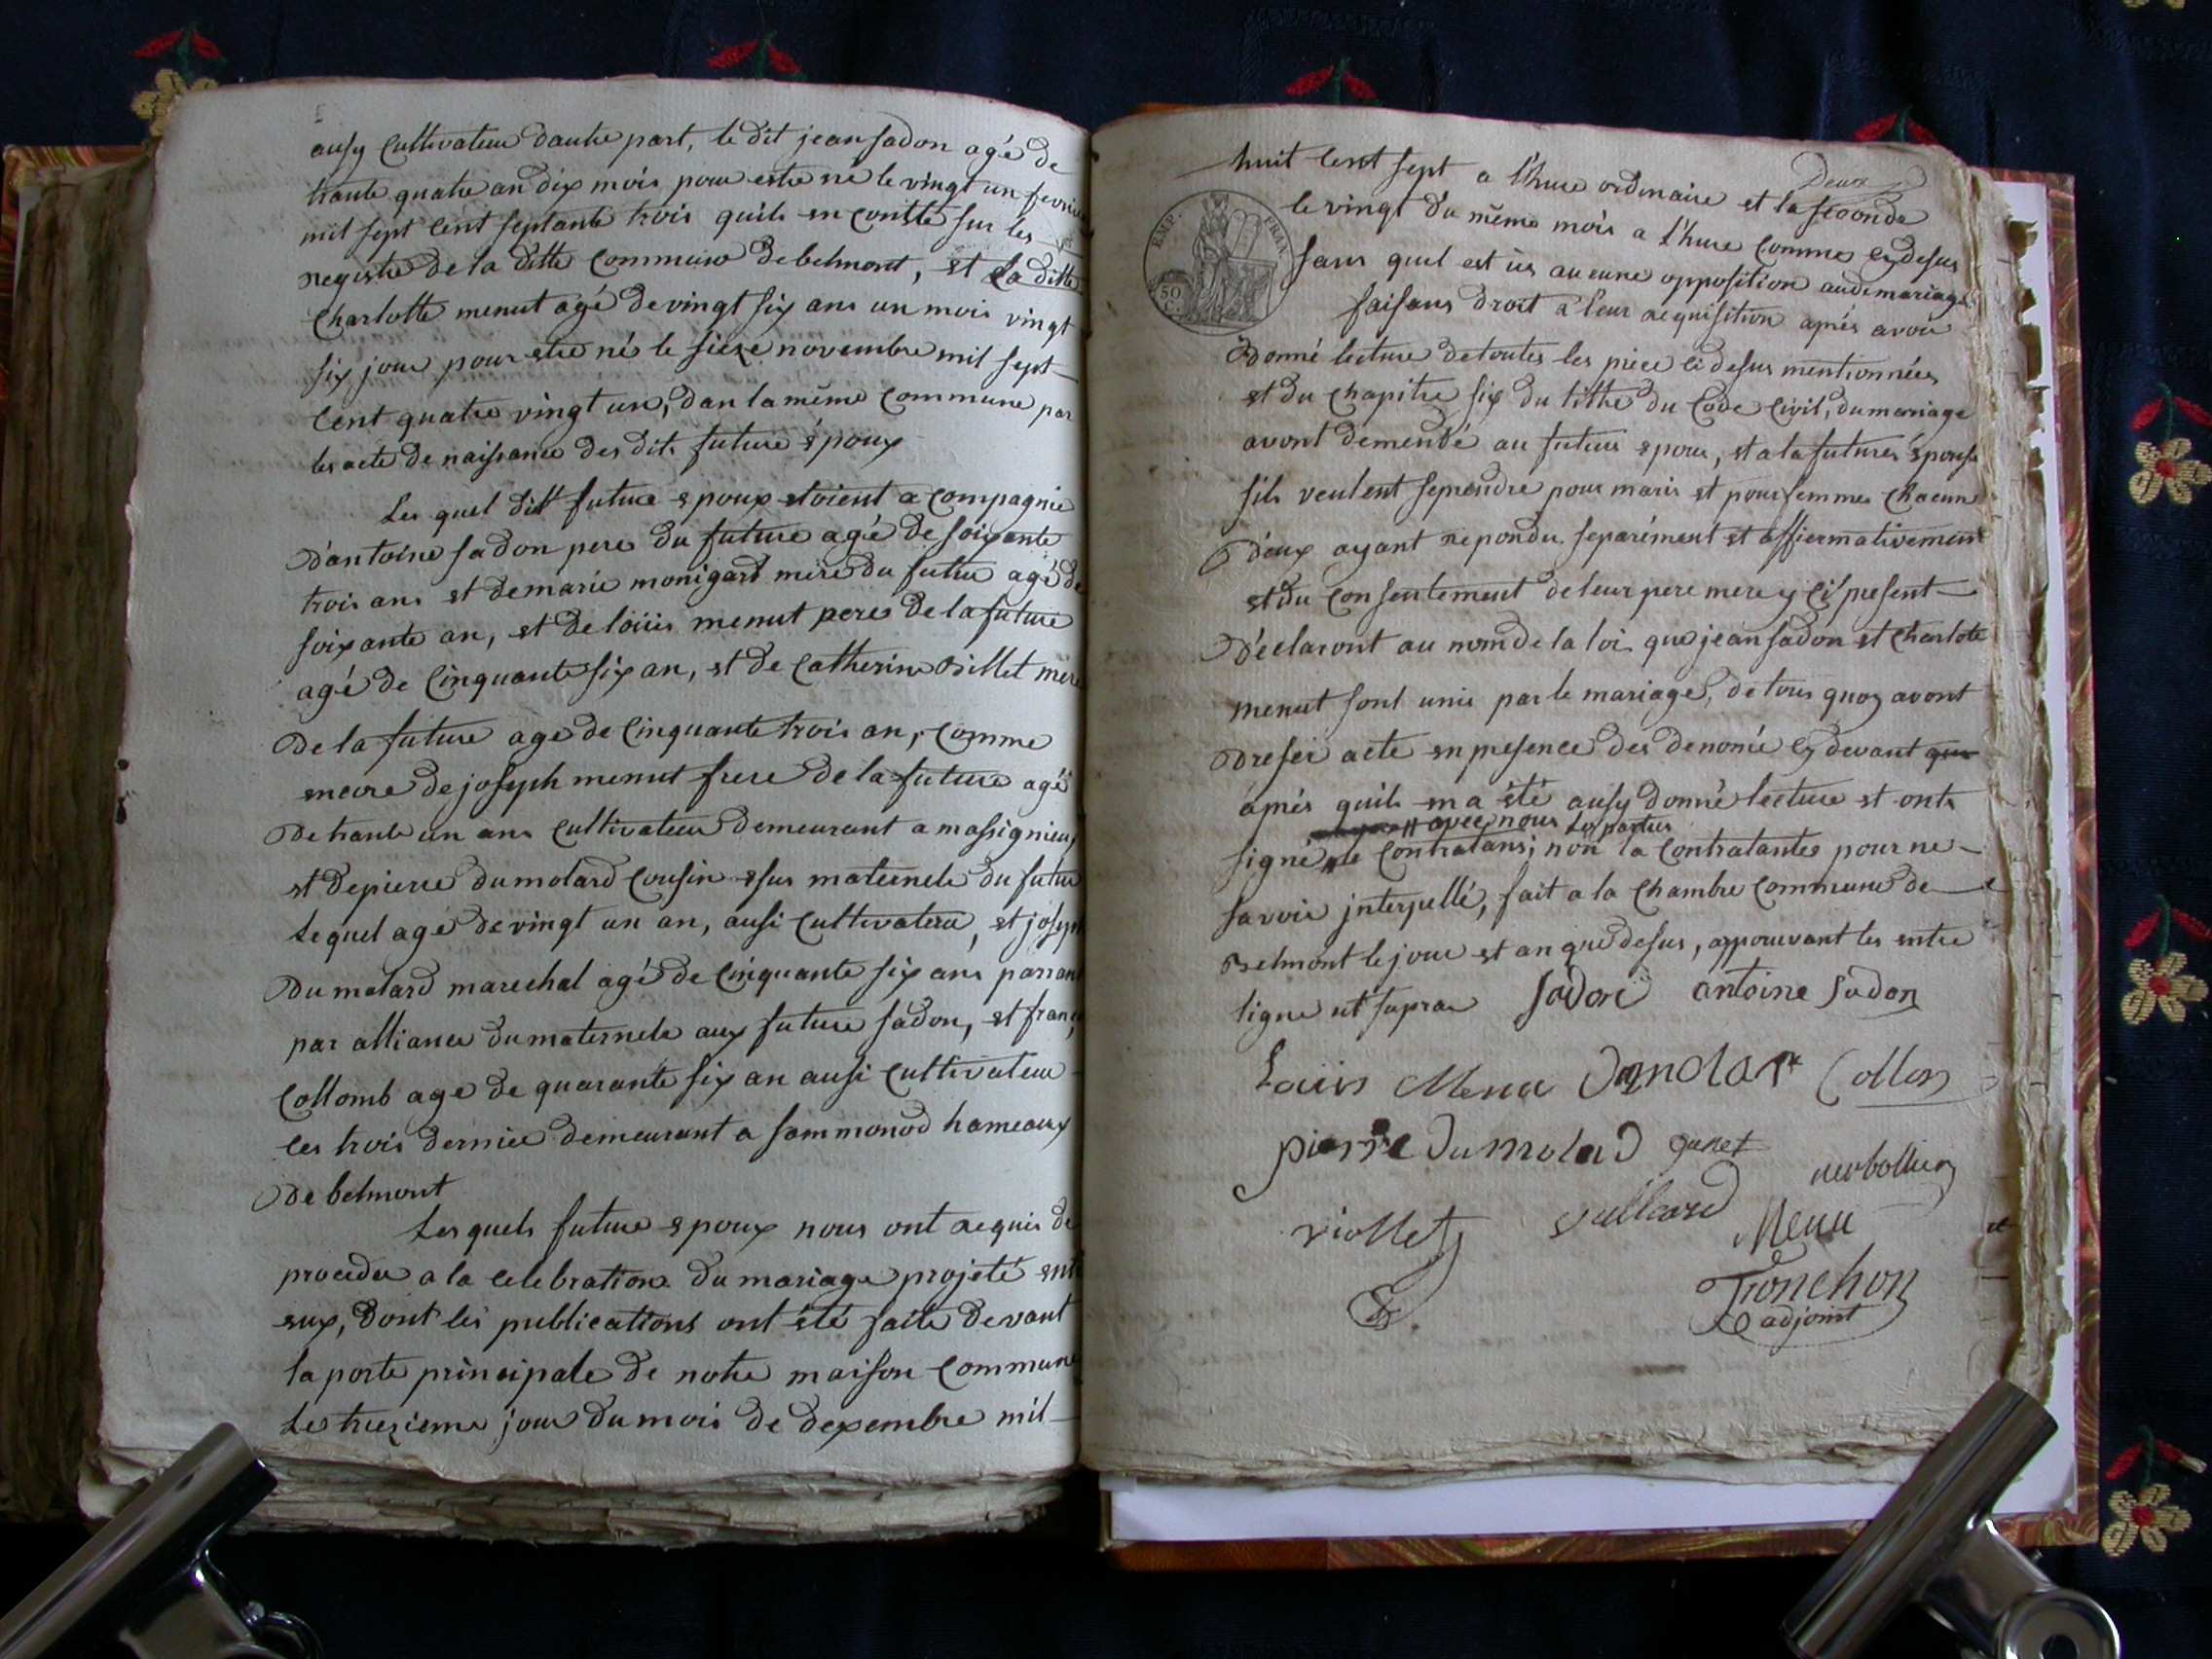 ausy Cultivateur dautre part, le dit jean sadon agé de
trante quatre an dix mois pour estre né le vingt un fevrier
mil sept Cent septante trois quils en Conste sur les
registre de la ditte Commune de belmont, et La ditte
Charlotte menut agé de vingt six ans un mois vingt
six jour pour etre né le sieze novembre mil sept
Cent quatre vingt un, dan la même Commune par
les acte de naissance des dits future époux
Les quel dit future epoux etoient a Compagnie
D'antoine sadon pere du future agé de soixante
trois ans et de marie monigard mere du futur agé de
soixante an, et de loüis menut pere de la future
agé de Cinquante six an, et de Catherine Billet mere
De la future age de Cinquante trois an, Comme
encore de joseph menut frere de la future agé
De trante un ans Cultivateur demeurant a massignieux
et de pierre dumolard Cousin esus maternele du futur
Lequel agé de vingt un an, ausi Cultivateur, et joseph
Dumolard marechal agé de Cinquante six ans parrant
par alliance du maternele aux future sadon, et franç
Collomb age de quarante six an ausi Cultivateur
les trois dernier demeurant a sammonod hameaux
De belmont
Lesquels future epoux nous ont requis de
proceder a la Celebration du mariage projeté entr
eux, Dont les publications ont été faite devant
la porte principale de notre maison Commune
Le treizieme jour du mois de dexembre mil
Deux
huit Cent sept a l'hure ordinaire et la seconde
le vingt du même mois a l'hure Comme cy desus
EMP. FRAN.
50 C.
sans quel est ües aucune opposition audi mariage
faisans droit a leur requisition aprés avoir
Donné lecture de toutes les piece ci desus mentionnées
et du Chapitre six du tittre du Code Civil, du mariage
avont demendé au future epoux, et a la future épouse
sils veulent seprendre pour maris et pour femmes Chacun
D'eux ayant repondu separément et affiermativement
et du Consentement de leur pere mere y ci present
Déclaront au nom de la loi que jean sadon et Charlote
menut sont unis par le mariage, de tous quoy avont
Dresér acte en presence des denomé cy devant que
aprés quils en a été ausy donné lecture et onts
avec nous Les parties
signé le Contratans; non la Contratante pour ne
savoir jnterpellé, fait a la Chambre Commune de
Belmont le jour et an que desus, appouvant les entre
ligne ut supra sadon antoine sadon
Loüis Menu Dumolart Collon
pierre Dumolard
viollet Menu
Tronchon
adjoint